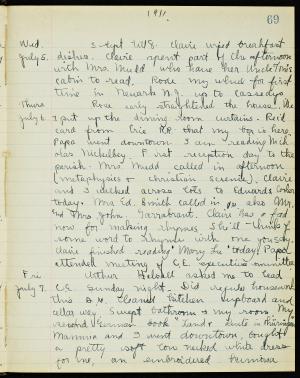 1911. 69
Wed. Slept till 8. Claire wiped breakfast
July 5. dishes. Claire spent part of the afternoon
with Mrs. Mudd who gave her Uncle Tom's
Cabin to read. Rode my wheel for first
time in Newark N.J. up to Cassedys.
Thurs Rose early straightened the house. We
July 6. put up the dining room curtains. Rec'd
card from Erie R.R. that my box is here.
Papa went downtown. I am reading Nich
olas Nickelby. First reception day to the
parish. Mrs Mudd called in afternoon
(metaphysics & Christian science). Claire
and I walked across lots to Edwards
today. Mrs Ed. Smith called in also Mr.
and Mrs. John Tarrabrant. Claire has a fad
now for making rhymes. She'll think of
some word to rhyme with one you say.
Claire finished reading "Mary Lee" today. Papa
attended meeting of C.E. executive committee
Fri Arthur asked me to lead
July 7. C.E. Sunday night. Did regular housework
this a.m. Cleaned kitchen cupboard and
cellar way. Swept bathroom & my room.
record German
Mamma and I went downtown, bought
a pretty soft low necked white dress
for me, an embroidered kimona